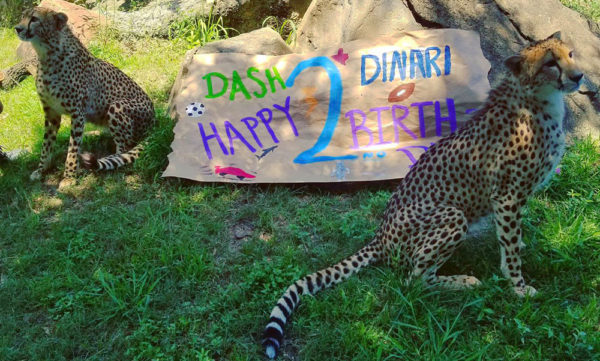 DASH 2 DINARI
HAPPY BIRTH